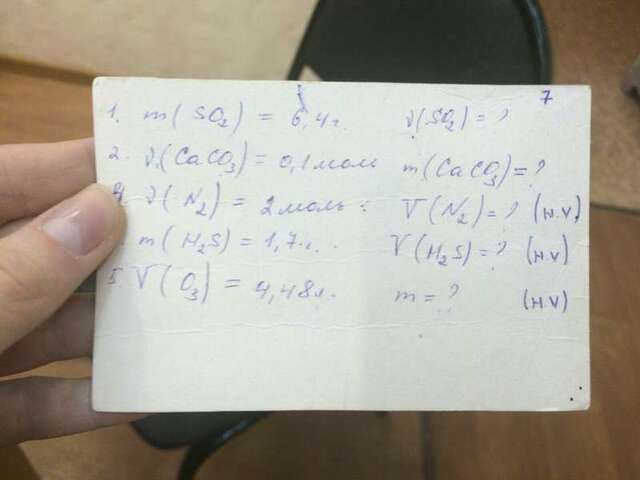 7
1. m(SO₂) = 6,4г. ν(SO₂) = ?
2. ν(CaCO₃) = 0,1 моль m(CaCO₃) = ?
ν(N₂) = 2 моль. V(N₂) = ? (н.у)
m(H₂S) = 1,7г. V(H₂S) = ? (н.у)
5. V(O₃) = 4,48л. m = ? (н.у)